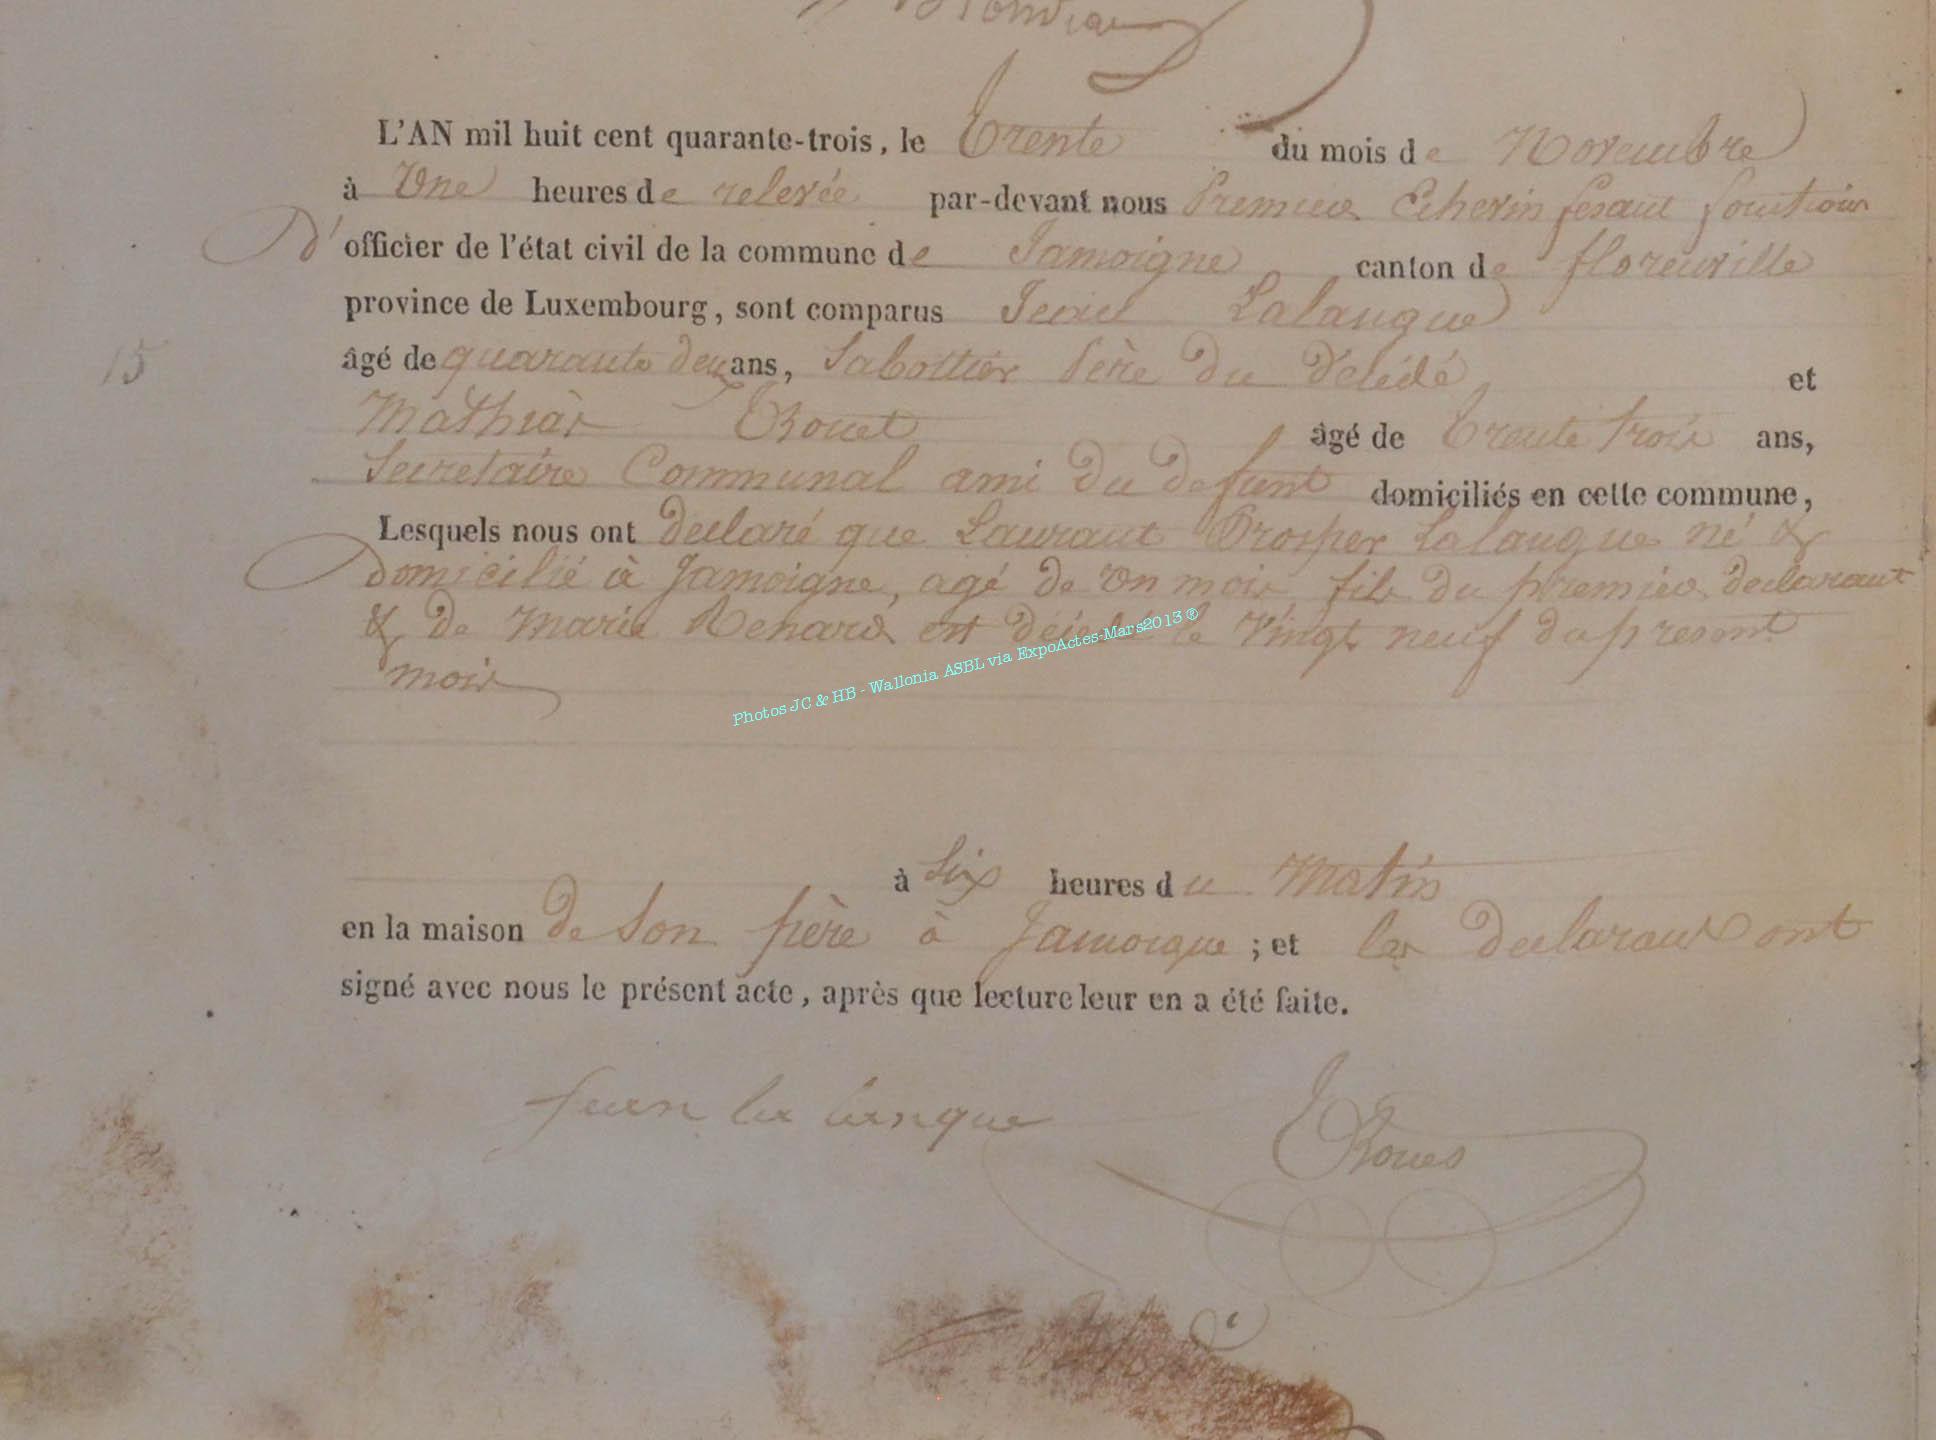 L'AN mil huit cent quarante-trois, le Trente du mois de Novembre
à Une heures de relevée par-devant nous Premier Echevin fesant fonction
d'officier de l'état civil de la commune de Jamoigne canton de florenville
province de Luxembourg, sont comparus Jean Lalangue
âgé de quarante deux ans, Sabottier Père du décédé et
15
Mathias âgé de Trente trois ans,
Secretaire Communal ami du defunt domiciliés en cette commune,
Lesquels nous ont declaré que Laurant Prosper Lalangue né &
domicilié à Jamoigne, agé de un mois, fils du premier declarant
& de Marie Renard est décédé le Vingt neuf du present
mois
Photos JC & HB - Wallonia ASBL via ExpoActes-Mars2013 ®
à Six heures du Matin
en la maison de Son père à Jamoigne ; et les declarants ont
signé avec nous le présent acte, après que lecture leur en a été faite.
jean la langue